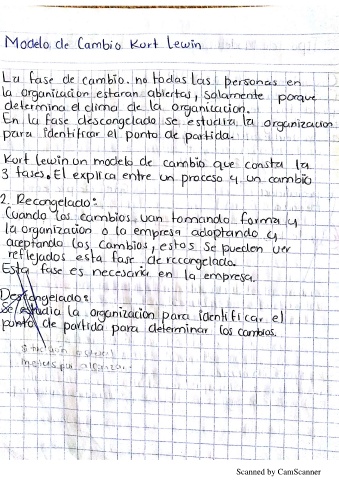 Modelo de Cambio Kurt Lewin
La fase de cambio. no todas las personas en
la organizacion estaran abiertas, solamente porque
determina el clima de la organizacion.
En la fase descongelado se estudia la organizacion
para identificar el punto de partida.
Kort Lewin un modelo de cambio que consta la
3 fases. El explica entre un proceso y un cambio
2. Recongelado:
Cuando los cambios van tomando forma y
la organizacion o la empresa adoptando y
aceptando los cambios, estos se pueden ver
reflejados esta fase de reccongelado.
Esta fase es necesaria en la empresa.
Descongelado:
Se estudia la organizacion para identificar el
punto de partida para determinar los cambios.
Scanned by CamScanner